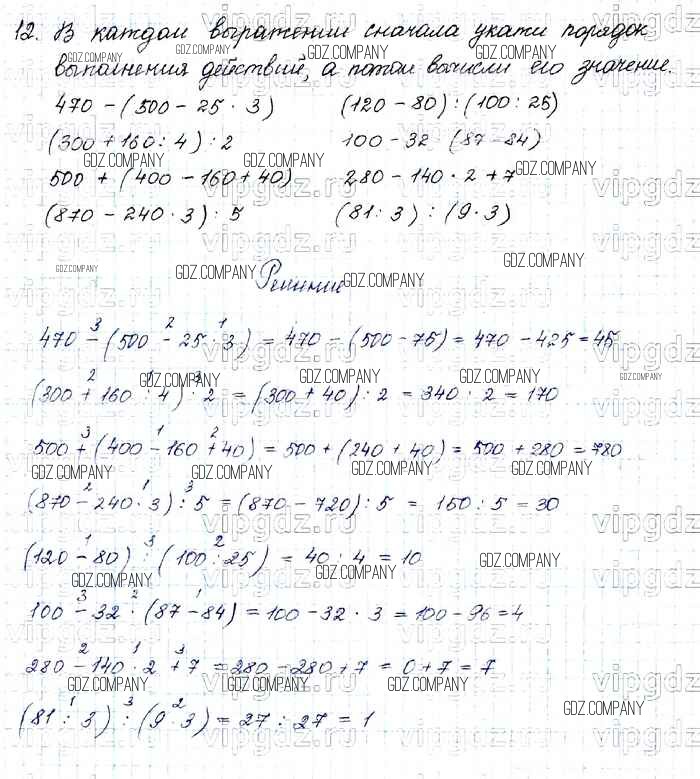 12. В каждом выражении сначала укажи порядок
выполнения действий, а потом вычисли его значение.
470 - (500 - 25 · 3) (120 - 80) : (100 : 25)
(300 + 160 : 4) : 2 100 - 32 · (87 - 84)
500 + (400 - 160 + 40) 280 - 140 · 2 + 7
(870 - 240 · 3) : 5 (81 : 3) : (9 · 3)
Решение
3 2 1
470 - (500 - 25 · 3) = 470 - (500 - 75) = 470 - 425 = 45
2 1 3
(300 + 160 : 4) : 2 = (300 + 40) : 2 = 340 : 2 = 170
3 1 2
500 + (400 - 160 + 40) = 500 + (240 + 40) = 500 + 280 = 780
2 1 3
(870 - 240 · 3) : 5 = (870 - 720) : 5 = 150 : 5 = 30
1 3 2
(120 - 80) : (100 : 25) = 40 : 4 = 10
3 2 1
100 - 32 · (87 - 84) = 100 - 32 · 3 = 100 - 96 = 4
2 1 3
280 - 140 · 2 + 7 = 280 - 280 + 7 = 0 + 7 = 7
1 3 2
(81 : 3) : (9 · 3) = 27 : 27 = 1
GDZ.COMPANY
vipgdz.ru